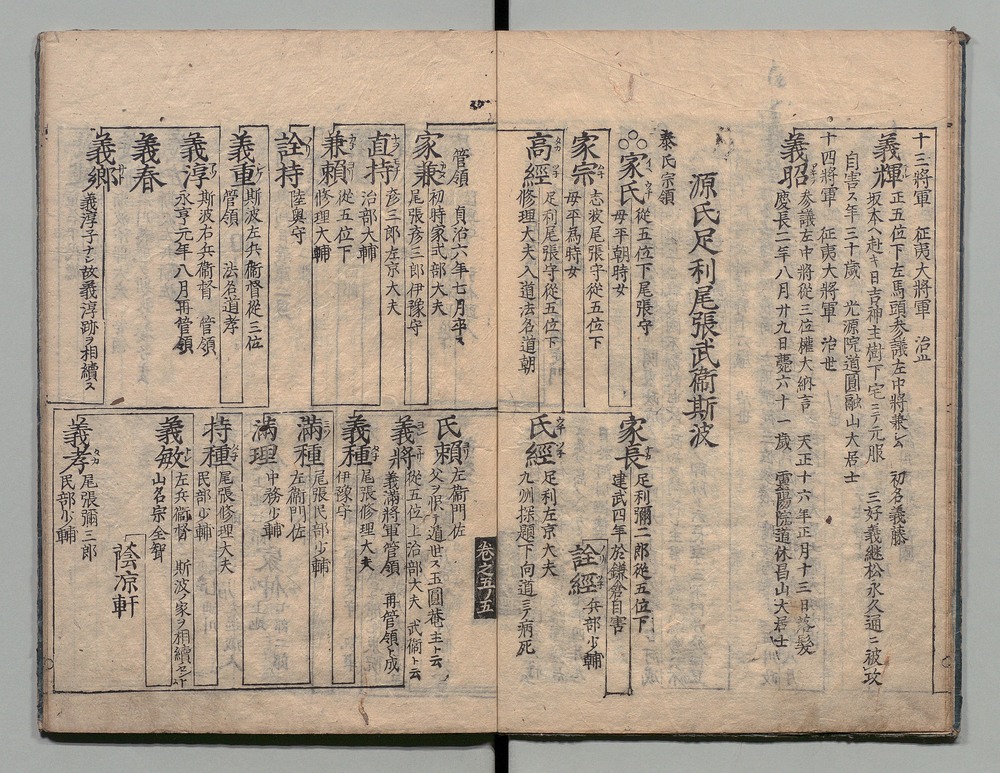 十三將軍 征夷大將軍 治世
義輝 正五位下左馬頭参議左中將兼ニ云 初名義藤
坂本ヘ赴キ日吉神主樹下宅ニテ元服 三好義継松永久通ニ被攻
自害ス年三十歳 光源院道圓融山大居士
十四將軍 征夷大將軍 治世
義昭 参議左中將從三位権大納言 天正十六年正月十三日落髪
慶長二年八月廿九日薨六十一歳 霊陽院道休昌山大居士
源氏足利尾張武衛斯波
泰氏宗領
家氏 從五位下尾張守
母平朝時女
家長 足利彌二郎從五位下
建武四年於鎌倉自害
詮經 兵部少輔
家宗 志波尾張守從五位下
母平為時女
高經 足利尾張守從五位下
修理大夫入道法名道朝
氏經 足利左京大夫
九州探題下向道ニテ病死
卷之五ノ五
管領 貞治六年七月卒ス
家兼 初時家式部大夫
尾張彦三郎伊豫守
直持 彦三郎左京大夫
治部大輔
兼頼 從五位下
修理大輔
詮持
陸奥守
義重 斯波左兵衛督從三位
管領 法名道孝
義淳 斯波右兵衛督 管領
永享元年八月再管領
義春
義郷 義淳子ナシ故義淳跡ヲ相續ス
氏頼 左衛門佐
父ヲ恨テ遁世ス玉圓菴主ト云
義將 從五位上治部大夫 武衛ト云
義滿將軍管領 再管領ト成
義種 尾張修理大夫
伊豫守
滿種 尾張民部少輔
左衛門佐
滿理 中務少輔
持種 尾張修理大夫
民部少輔
義敏 左兵衛督 斯波ノ家ヲ相續セシム
山名宗全聟
蔭凉軒
義孝 尾張彌三郎
民部少輔